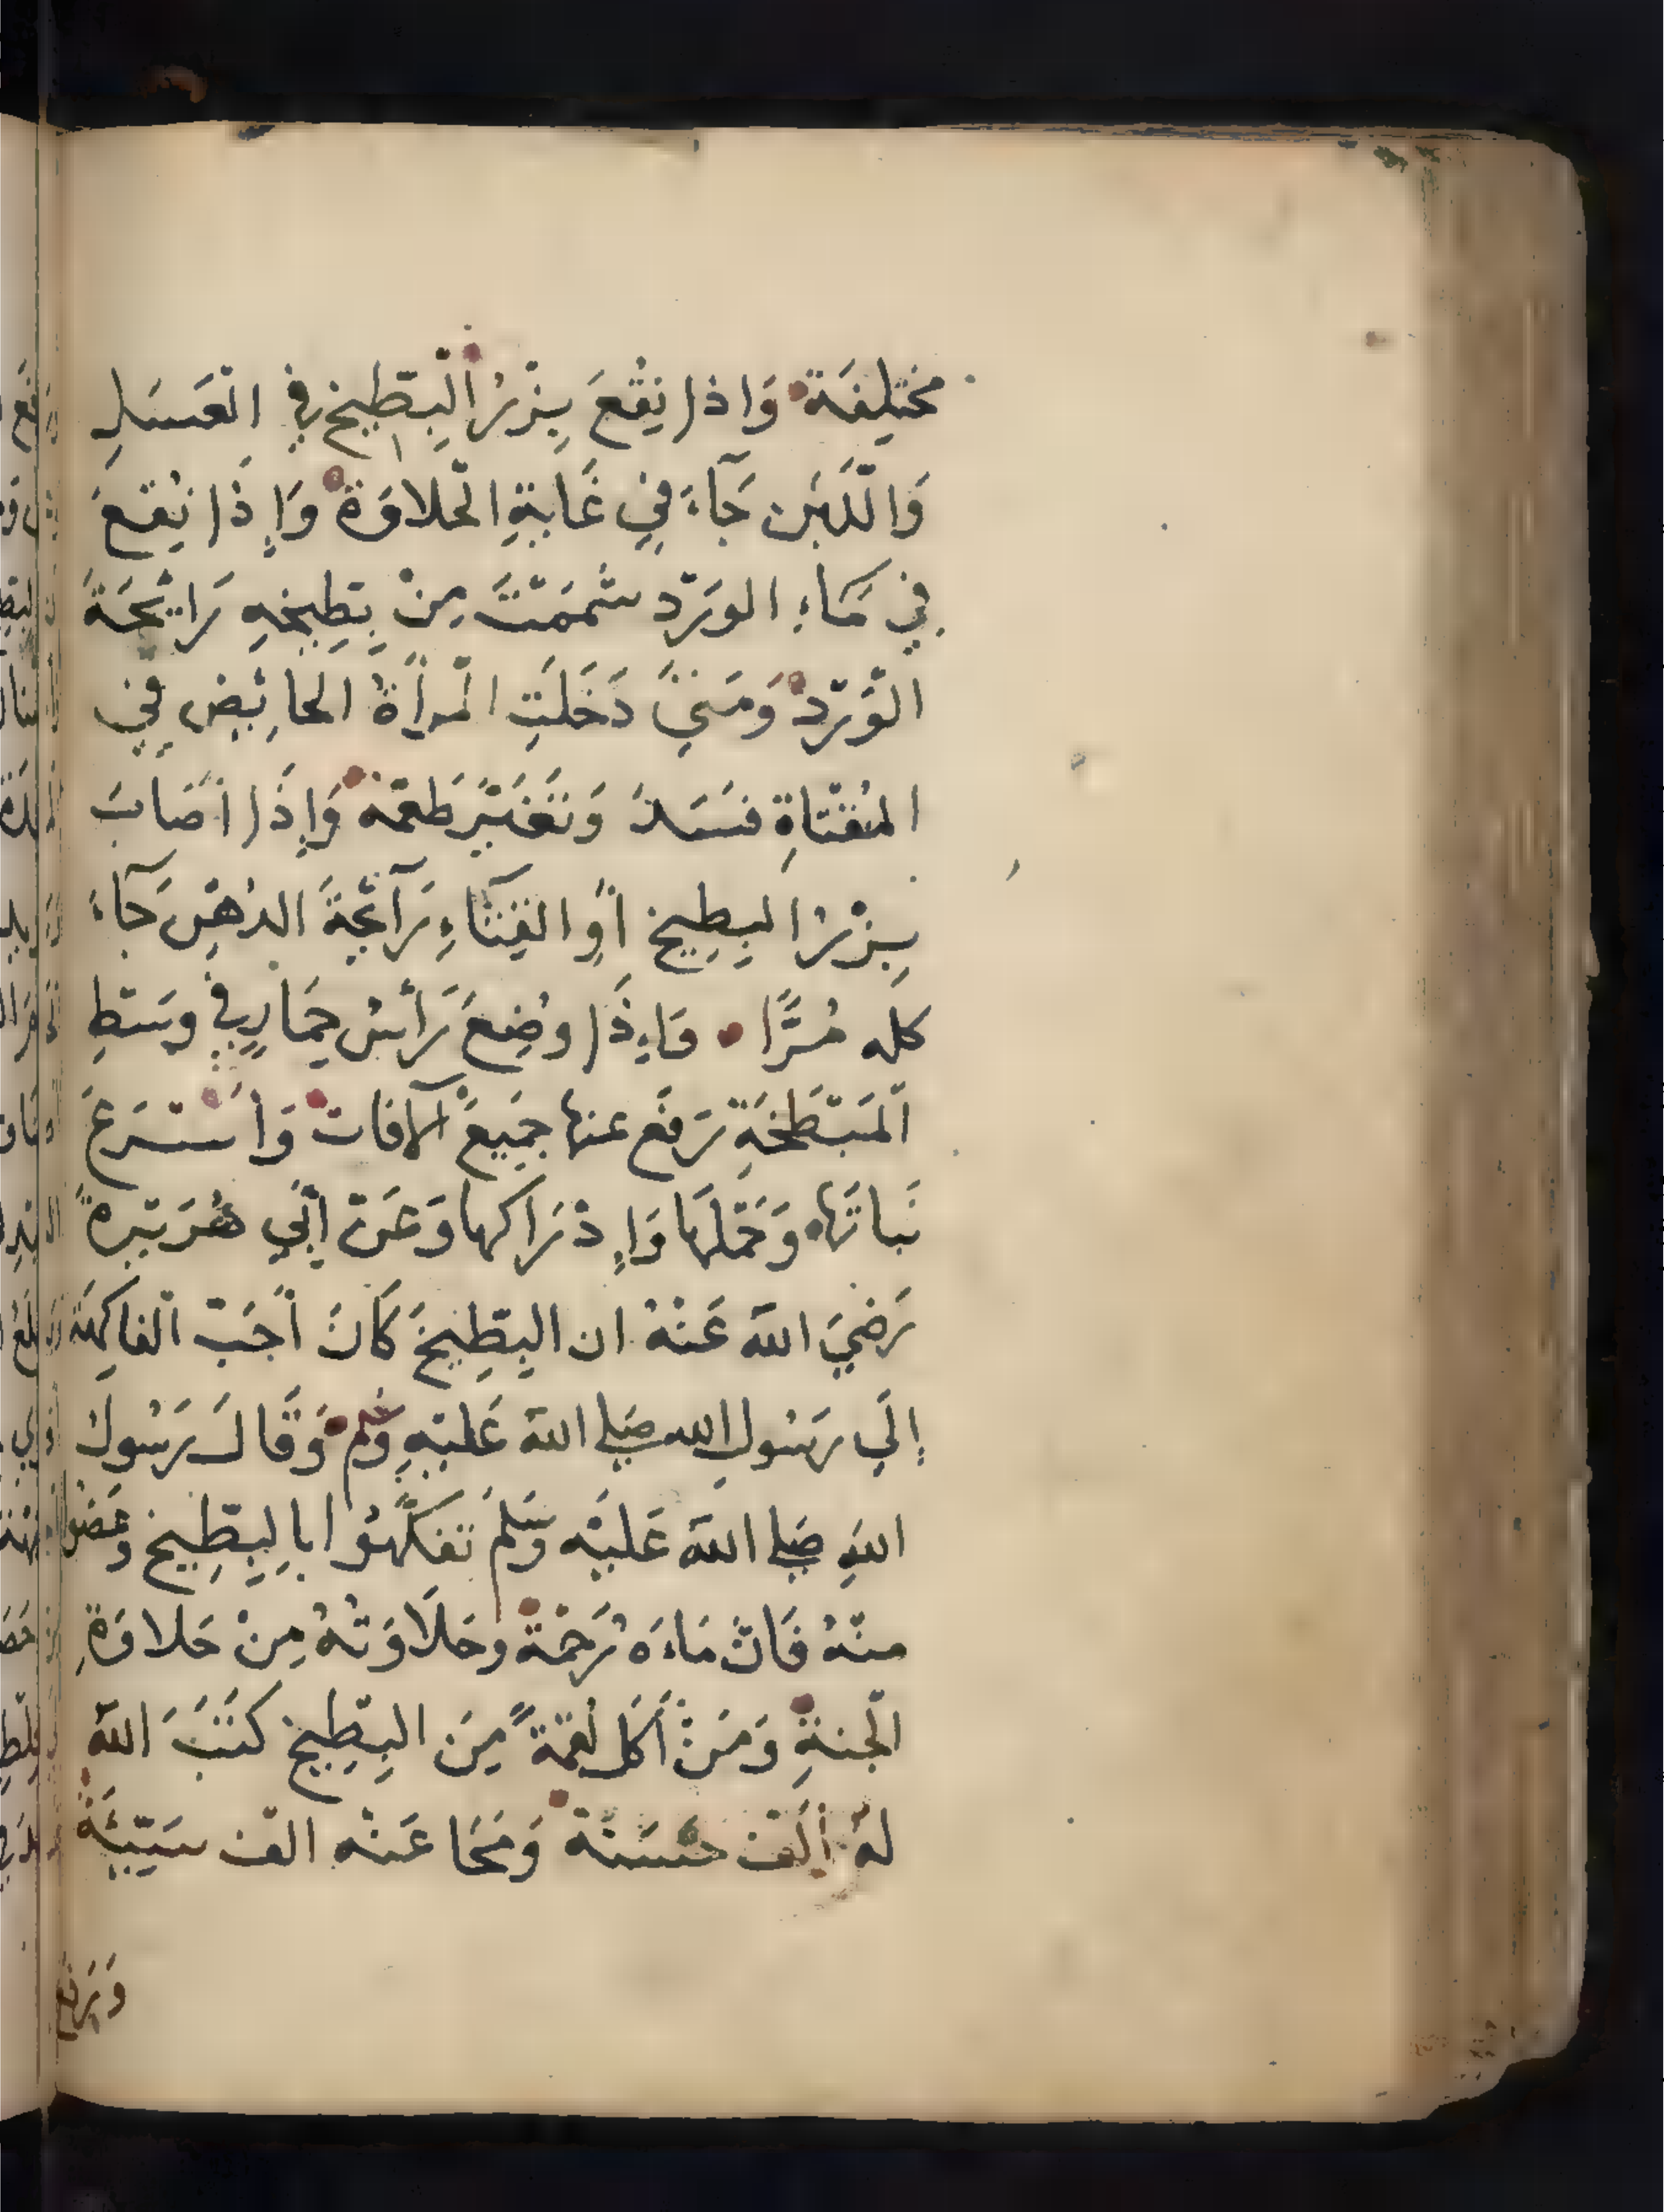 مختلِفَة وَاذا نِقْعَ بِزْرُ الْبِطّيخ في الْعَسَلِ
وَالَّلبَن جَآءَ فِي غَايةِ الْحلاوَة وَإِذَا نُقعَ
فِي مَاءِ الورَدّ شممَتَّ مِنْ بِطِيخِهِ رَائِحَةَ
الْوَرّد وَمَتيَ دَخَلَتِ الْمرأةُ الحائِض فِي
المُقتاةِ فسَدَ وَتَغَيَّر طَعْمَه وَإِذَا أصَابَ
بِزْرُ البِطِيخ أوِ القِثآءِ رَآئِحَةَ الدُهْنِ جَآءَ
كله مُرًّا فَاءِذَا وضِعَ رَأسُ حِمَارٍ في وسَطِ
الْمَبْطَخَةِ رَفَع عنها جَمِيعَ الآفات وَأسْرَعَ
نَباتَها وَحَمْلَها وَإِدْرَاكها وَعَنْ أبِي هُرَيْرةً
رَضيَ اللّه عَنْهُ ان البِطِيخَ كَانَ أحَبّ الْفاكِهَةِ
إلَي رَسُولِ الله صَلي اللّه عَليْهِ وسَلم وَقَالَ رَسُولُ
اللّهِ صَلي اللّه عَليْه وَسَلمَ تفكَّهُوا بالبِطِيخِ وعَضُوا
منْهُ فَانَّ مَاءَه رُحَمْة وحَلَاوَتُهُ مِنْ حَلاوَةِ
الْجنةِ وَمَنْ أكَل لُقْمةً مِنَ البِطِيخ كَتَبَ اللّه
لهُ ألف حسَنة وَمَحَا عَنْه الف سَيّئَة
وَيرَفع